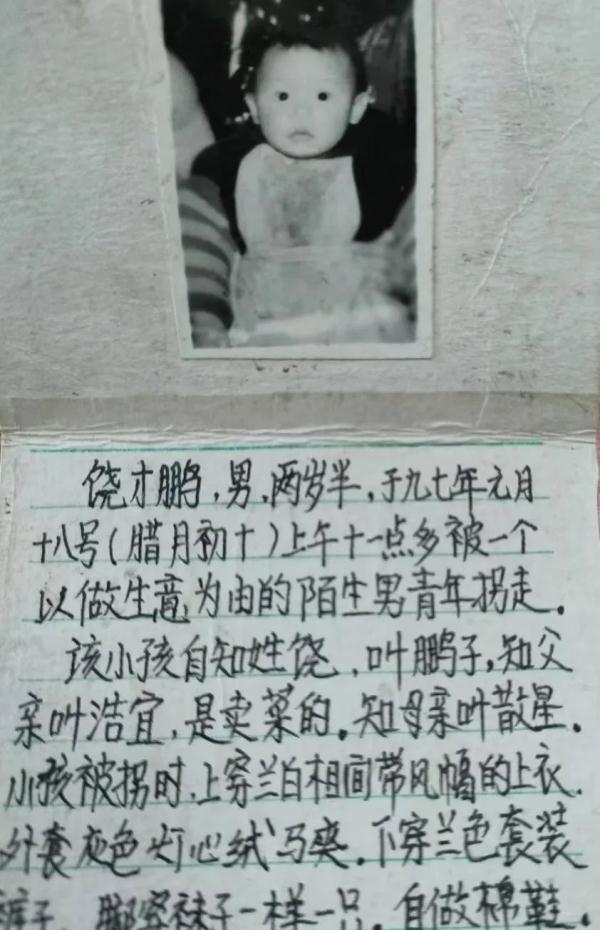 饶才鹏，男，两岁半，于九七年元月
十八号（腊月初十）上午十一点多被一个
以做生意为由的陌生男青年拐走。
该小孩自知姓饶，叫鹏子，知父
亲叫浩宜，是卖菜的。知母亲叫散星。
小孩被拐时，上穿兰白相间带风帽的上衣，
外套灰色灯心绒马夹，下穿兰色套装
裤子，脚穿袜子一样一只，自做棉鞋。